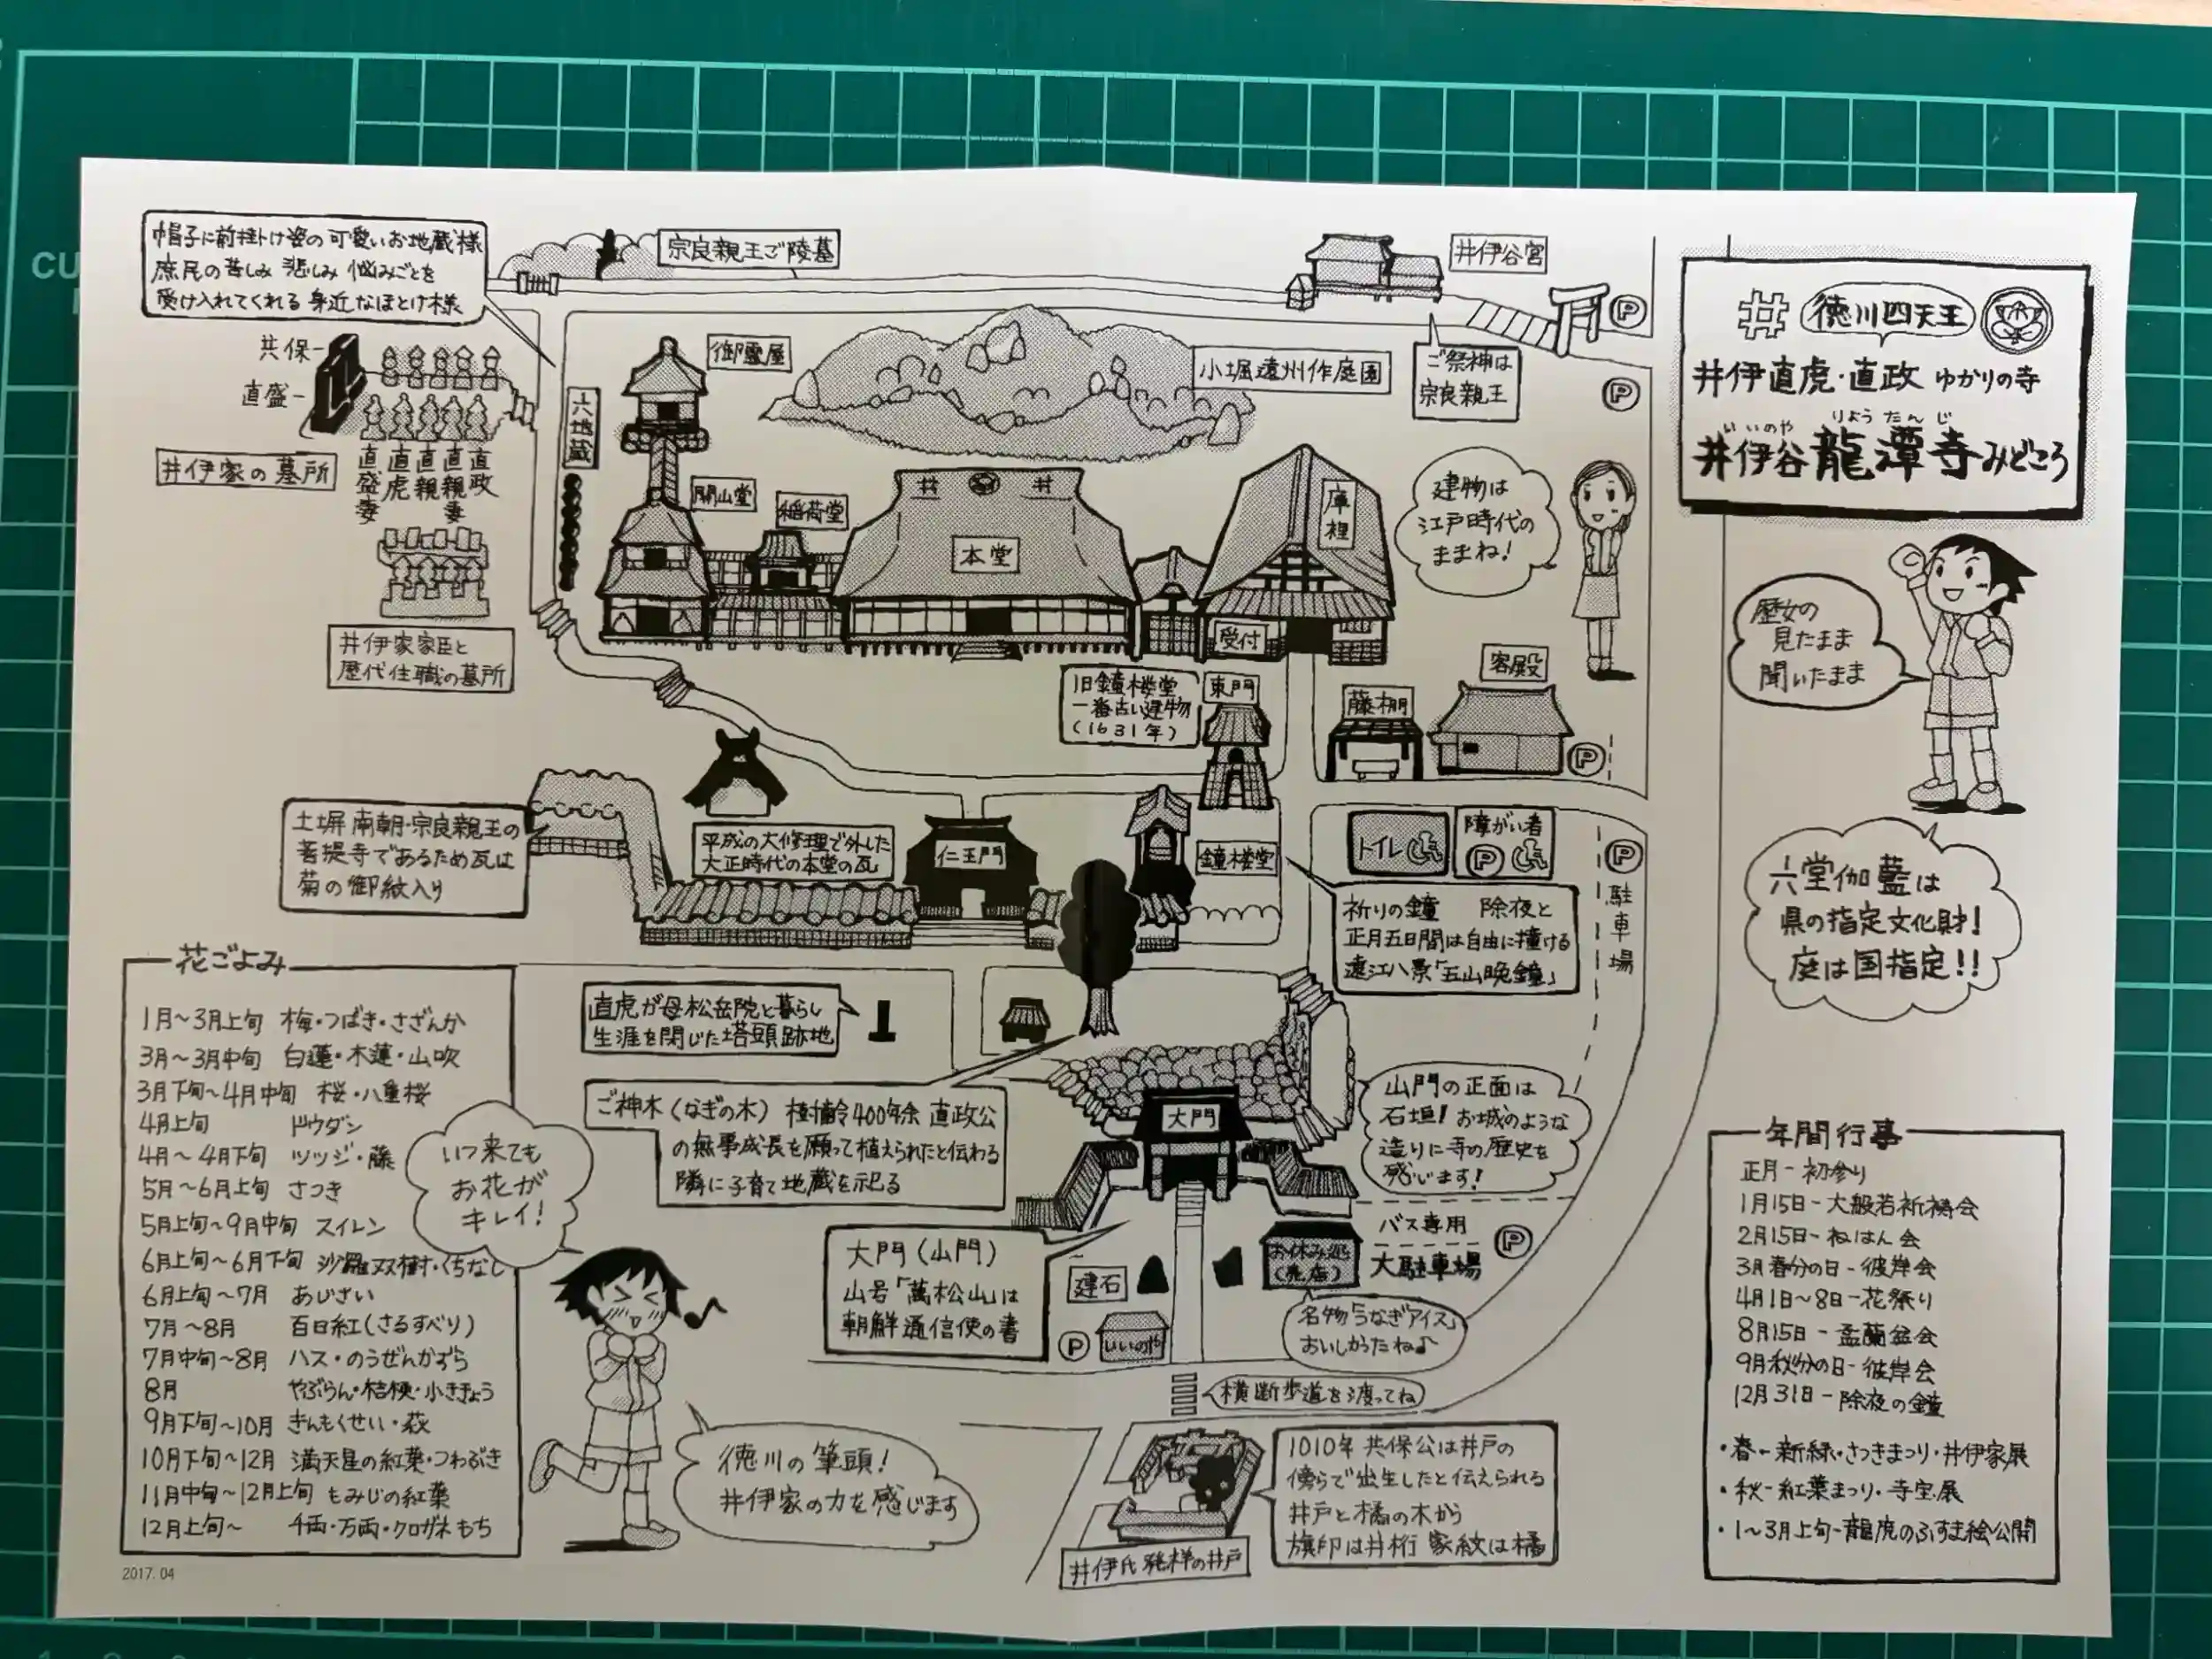 井 徳川四天王
井伊直虎・直政 ゆかりの寺
いいのや りょうたんじ
井伊谷 龍潭寺みどころ
帽子に前掛け姿の可愛いお地蔵様
庶民の苦しみ 悲しみ 悩みごとを
受け入れてくれる 身近なほとけ様
宗良親王ご陵墓
井伊谷宮
P
ご祭神は
宗良親王
P
共保
直盛
直盛妻
直虎
直親
直親妻
直政
井伊家の墓所
井伊家家臣と
歴代住職の墓所
六地蔵
御霊屋
小堀遠州作庭園
開山堂
稲荷堂
井 井
本堂
庫裡
受付
建物は
江戸時代の
ままね!
歴女の
見たまま
聞いたまま
旧鐘楼堂
一番古い建物
(1631年)
東門
藤棚
客殿
P
六堂伽藍は
県の指定文化財!
庭は国指定!!
土塀 南朝・宗良親王の
菩提寺であるため瓦は
菊の御紋入り
平成の大修理で外した
大正時代の本堂の瓦
仁王門
鐘楼堂
トイレ
障がい者
P
P
駐車場
祈りの鐘 除夜と
正月五日間は自由に撞ける
遠江八景「五山晩鐘」
直虎が母松岳院と暮らし
生涯を閉じた塔頭跡地
ご神木(なぎの木) 樹齢400年余 直政公
の無事成長を願って植えられたと伝わる
隣に子育て地蔵を祀る
大門
山門の正面は
石垣! お城のような
造りに寺の歴史を
感じます!
大門(山門)
山号「萬松山」は
朝鮮通信使の書
建石
P
いいのや
お休み処
(売店)
バス専用
大駐車場
P
名物「うなぎアイス」
おいしかったね♪
横断歩道を渡ってね
1010年 共保公は井戸の
傍らで出生したと伝えられる
井戸と橘の木から
旗印は井桁 家紋は橘
井伊氏発祥の井戸
花ごよみ
1月〜3月上旬 梅・つばき・さざんか
3月〜3月中旬 白蓮・木蓮・山吹
3月下旬〜4月中旬 桜・八重桜
4月上旬 ドウダン
4月〜4月下旬 ツツジ・藤
5月〜6月上旬 さつき
5月上旬〜9月中旬 スイレン
6月上旬〜6月下旬 沙羅双樹・くちなし
6月上旬〜7月 あじさい
7月〜8月 百日紅(さるすべり)
7月中旬〜8月 ハス・のうぜんかずら
8月 やぶらん・桔梗・小ききょう
9月下旬〜10月 きんもくせい・萩
10月下旬〜12月 満天星の紅葉・つわぶき
11月中旬〜12月上旬 もみじの紅葉
12月上旬〜 千両・万両・クロガネもち
2017.04
いつ来ても
お花が
キレイ!
徳川の筆頭!
井伊家の力を感じます
年間行事
正月-初参り
1月15日-大般若祈祷会
2月15日-ねはん会
3月春分の日-彼岸会
4月1日〜8日-花祭り
8月15日-盂蘭盆会
9月秋分の日-彼岸会
12月31日-除夜の鐘
・春-新緑・さつきまつり・井伊家展
・秋-紅葉まつり・寺宝展
・1〜3月上旬-龍虎のふすま絵公開